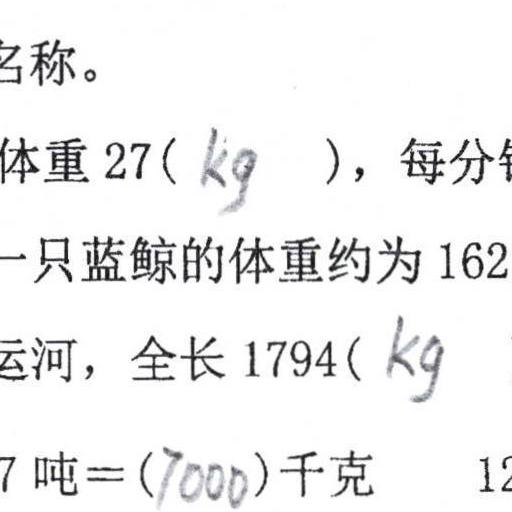 名称。
体重 27( kg ), 每分钟
一只蓝鲸的体重约为 162
运河, 全长 1794( kg
7 吨=(7000)千克 12